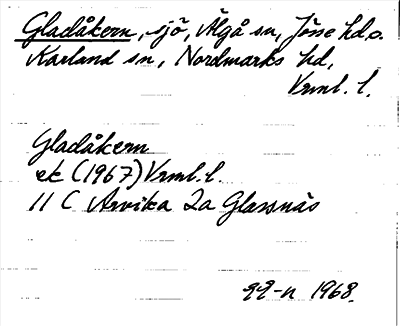 Gladåkern, sjö, Älgå sn, Jösse hd o.
Karlanda sn, Nordmarks hd,
Vrml. l.
Gladåkern
ek (1967) Vrml. l.
11 C Arvika 2a Glassnäs
1968.